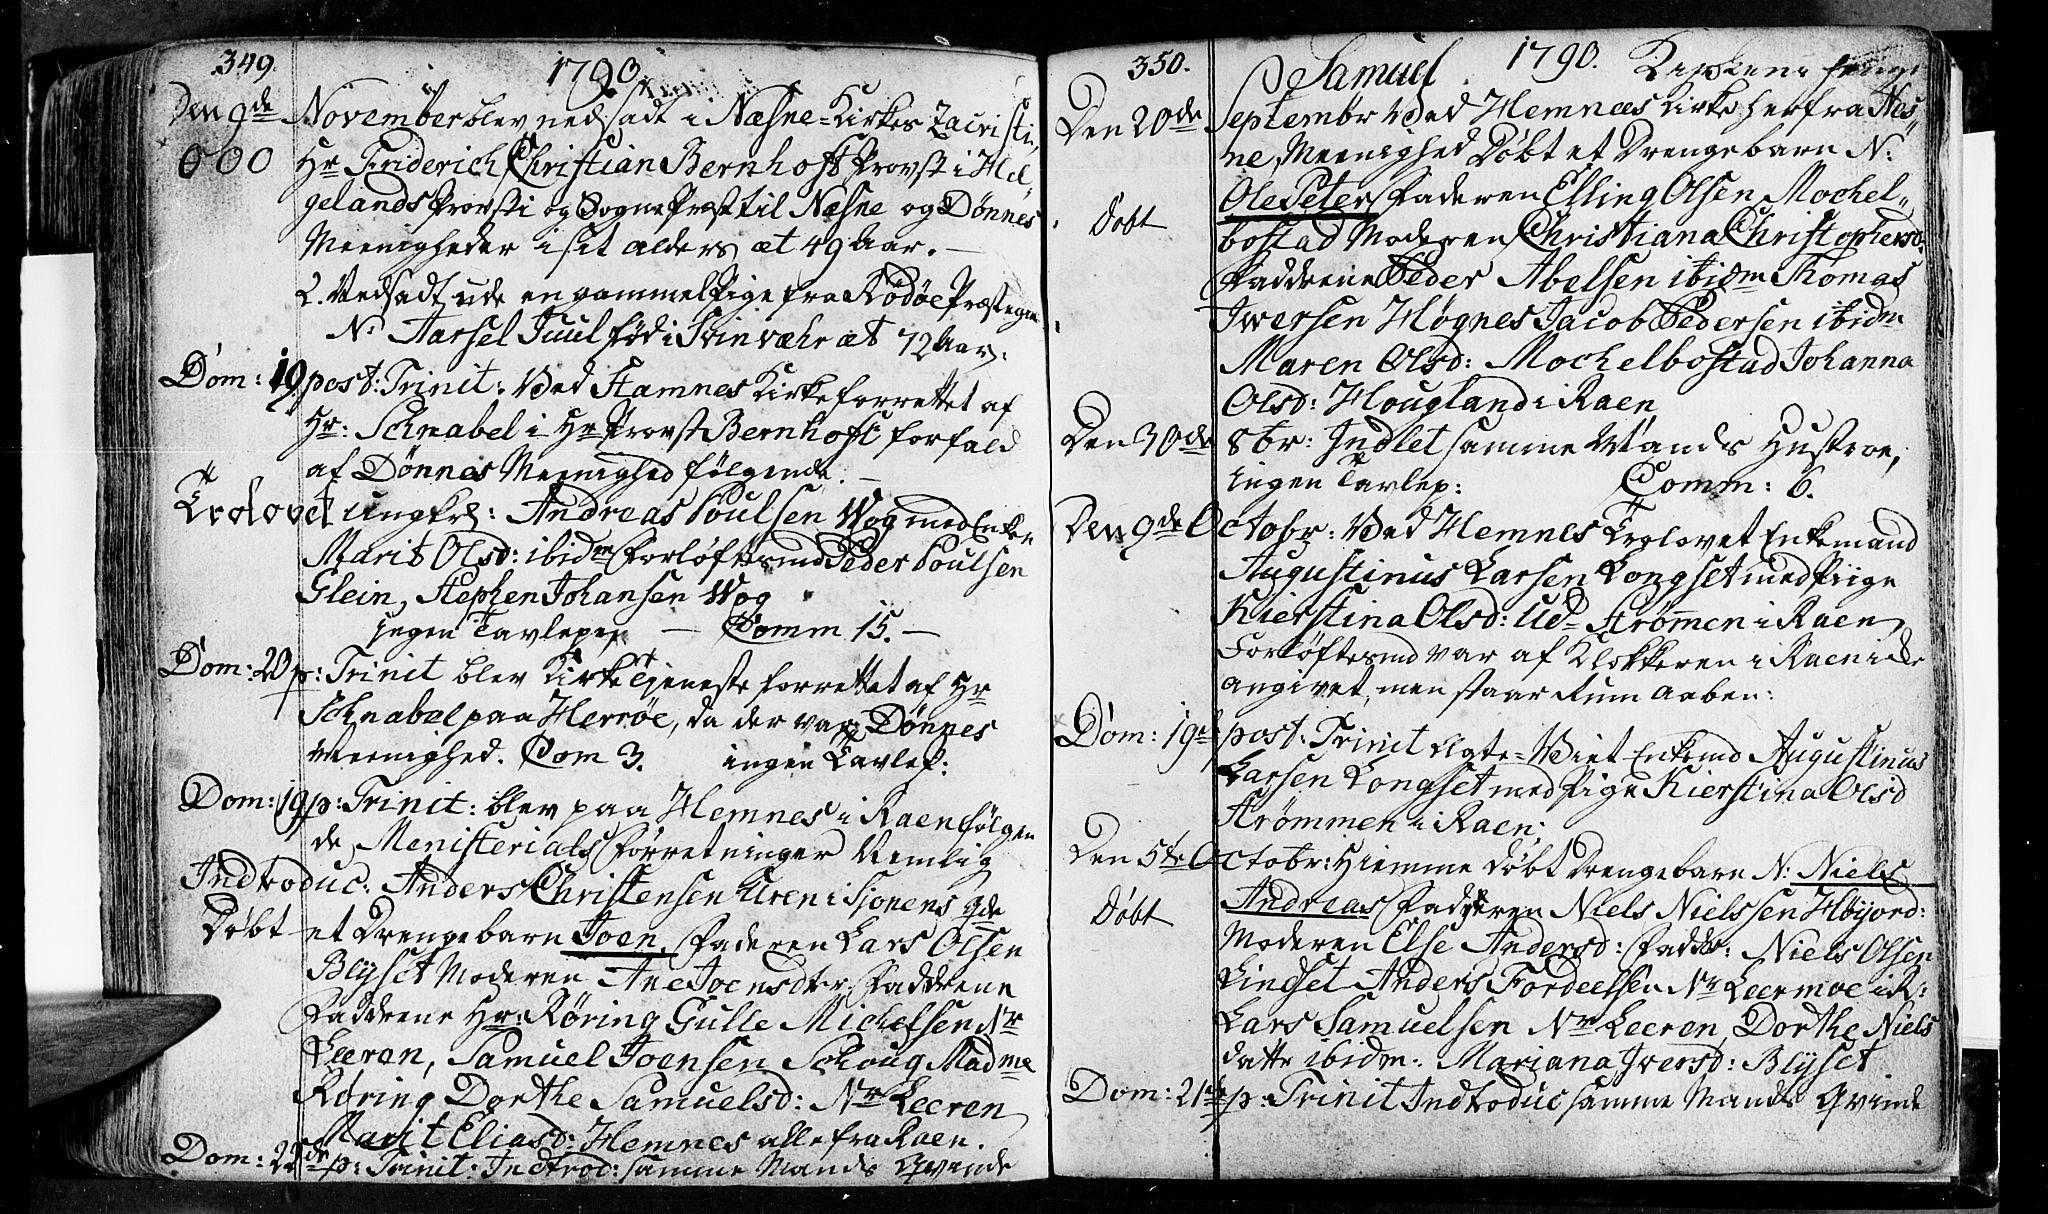 349.
1790.
Den 9de November blev nedsadt i Næsne=Kirkes Zacristi,
000 Hr Friderich Christian Bernhoft Provst i Hel-
gelands Provsti og Sogne Præst til Næsne og Dønnes
Meenigheder i sit alders æt 49 Aar. —
2. Nedsadt ude en gammel Pige fra Rødøe Præsteg
N: Aarsel Juul fød i Svinværhr æt 72 Aar.
Dom: 19. post: Trinit: Ved Stamnes Kirke forrettet af
Hr: Schnabel i Hr Provst Bernhoft forfald
af Dønnes Meenighed følgende. —
Trolovet ungkrl: Andreas Poulsen Wog med Enken
Marit Olsd: ibidm Forløftesmd Peder Poulsen
Glein, Stephen Johansen Wog
ingen Tavlep — Comm 15. —
Dom: 20 p: Trinit blev Kirke Tjeneste forrettet af Hr
Schnabel paa Herrøe, da der var Dønnes
Meenighed. Com 3. ingen Tavlep:
Dom: 19 p: Trinit: blev paa Hemnes i Raen følgen
de Menisterials Forretninger Nemlig
Indtroduc: Anders Christensen Uren i Sjonens Qde
Døbt et Drengebarn Joen, Faderen Lars Olsen
Blyset Moderen Ane Joensdtr Faddrene
Faddrene Hr: Røring Gulle Michelsen Nr
Leeren, Samuel Joensen Schoug Madme
Røring Dorthe Samuelsd: Nr Leeren
Marit Eliasd: Hemnes alle fra Raen.
Dom: 22de p: Trinit: Indtrod: samme Mands Qvinde
350.
Samuel 1790.
Den 20de Septembr Ved Hemnæs Kirke her fra Næs„
ne Meenighed Døbt et Drengebarn N:
Døbt
Ole Peter, Faderen Elling Olsen Mochel„
bostad Moderen Christiana Christophersd.
Faddrene Peder Abelsen ibidm Thomas
Iwersen Høgnes Jacob Pedersen ibidm
Maren Olsd: Mochelbostad Johanna
Olsd: Hougland i Raen
Den 30de 8br: Indlet samme Mands Hustroe,
ingen Tavlep: Comm: 6.
Den 9de Octobr: Ved Hemnes Trolovet Enkemand
Augustinus Larsen Longset med Piige
Kierstina Olsd: Ud Strømen i Raen
Forløftesmd var af Klokkeren i Raen icke
angivet, men staar Rum aaben:
Dom: 19de post: Trinit Egte=Viet Enkemd Augustinus
Larsen Longset med Pige Kierstina Olsd
Strømmen i Raen.
Den 5te Octobr: Hiemme døbt Drengebarn N: Niels
Døbt
Andreas Fadderen Niels Nielssen Høyjord:
Moderen Else Andersd: Fadd: Niels Olsen
Lindset Anders Fordeelsen Nr Leermoe i R:
Lars Samuelsen Nr Leeren, Dorthe Niels
datte ibidm: Mariana Iversd: Blyset
Dom: 21de p: Trinit Indtroduc samme Mands Qvinde